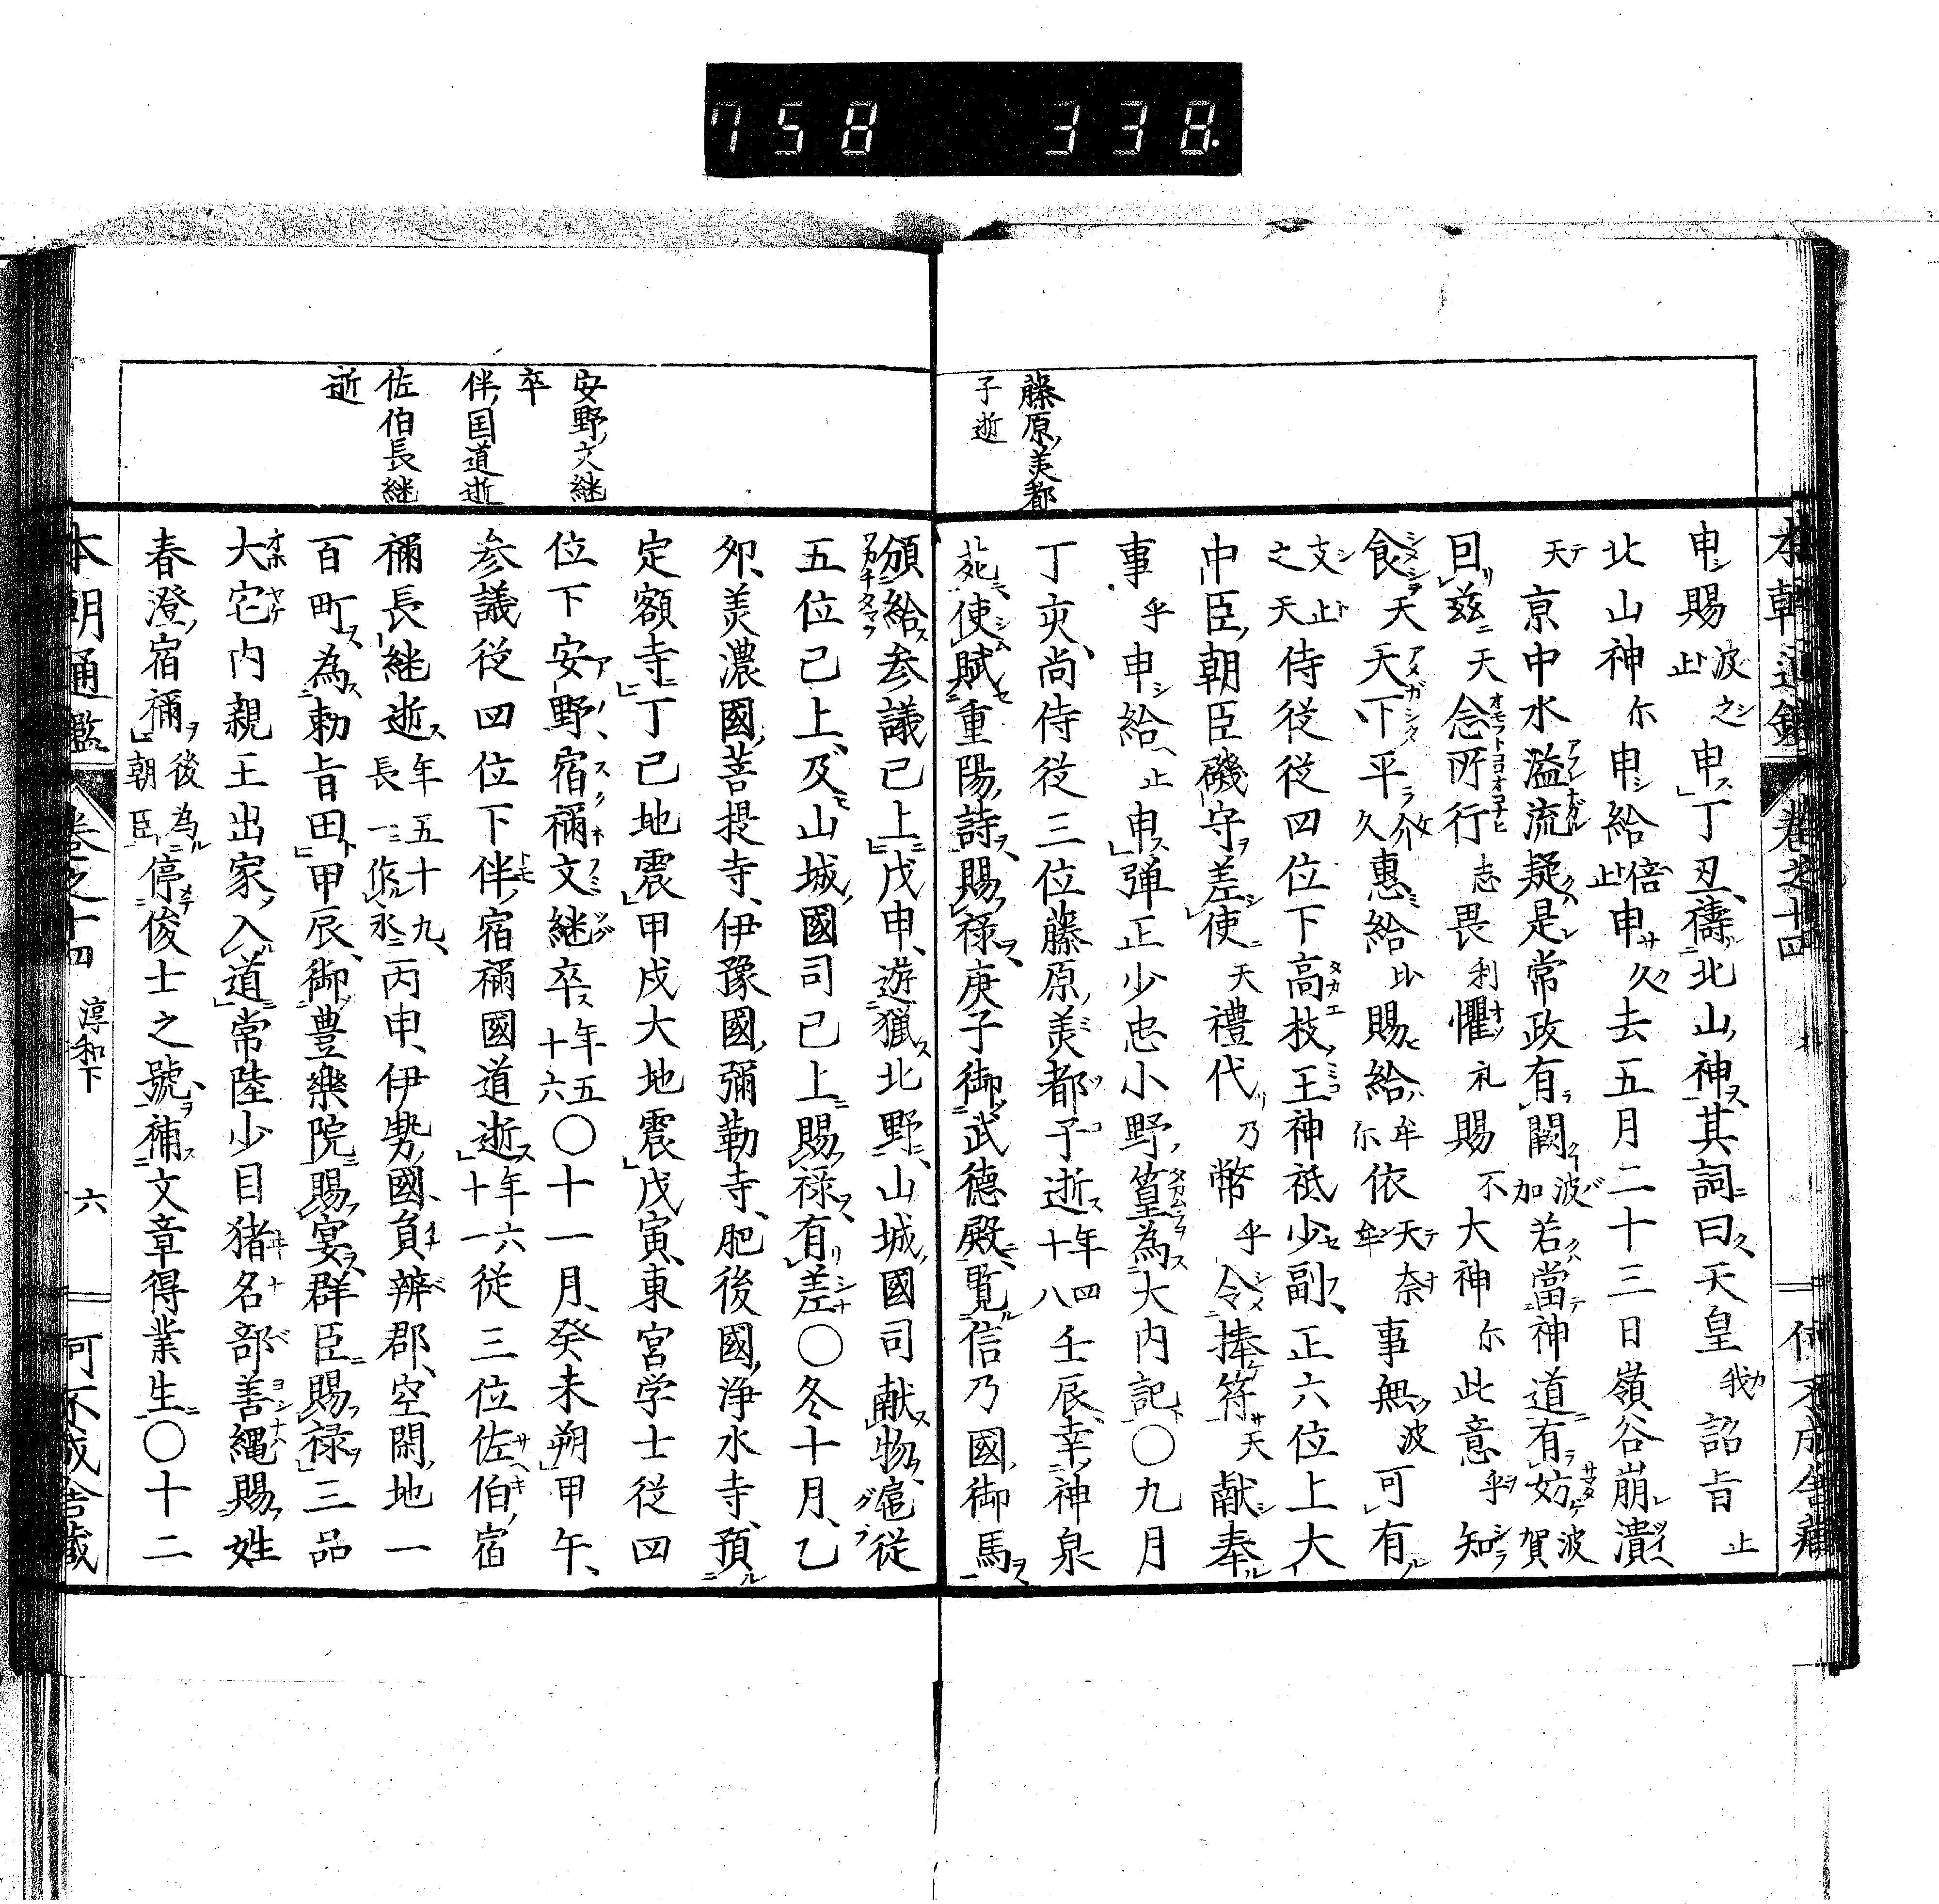 758 338.
藤原ノ美都
子逝
申賜波止之申丁丑、禱北山神其詞曰天皇我詔旨止
北山神尓申給倍止申久去五月二十三日嶺谷崩潰
天京中水溢流疑是常政有闕波加若當神道有妨波賀
回茲天念所行志畏利懼礼賜不大神尓此意乎知
食天天下平介久惠給比賜給牟尓依天奈牟事無波可有
支止之天侍從從四位下高枝王神祇少副、正六位上大
中臣朝臣磯守差使天禮代乃幣乎令捧符天獻奉
事乎申給止申彈正少忠小野篁為大內記○九月
丁亥、尚侍從三位藤原美都子逝年四十八壬辰、幸神泉
苑使賦重陽詩賜祿庚子御武德殿覽信乃國御馬
安野ノ文継
卒
伴ノ国道逝
佐伯長継
逝
頒給参議已上戊申、遊獵北野、山城國司獻物扈從
五位已上、及山城國司已上賜祿有差○冬十月、乙
卯、美濃國菩提寺、伊豫國彌勒寺、肥後國浄水寺、預
定額寺丁巳地震甲戌大地震戊寅、東宮学士從四
位下安野宿禰文継卒年五十六○十一月、癸未朔甲午、
参議從四位下伴宿禰國道逝年六十一從三位佐伯宿
禰長継逝年五十九、長一作永丙申、伊勢國員辨郡、空閑地一
百町為勅旨田甲辰、御豊樂院賜宴群臣賜祿三品
大宅内親王出家入道常陸少目猪名部善縄賜姓
春澄宿禰後為朝臣停俊士之號補文章得業生○十二
本朝通鑑 卷之十四 淳和下 六